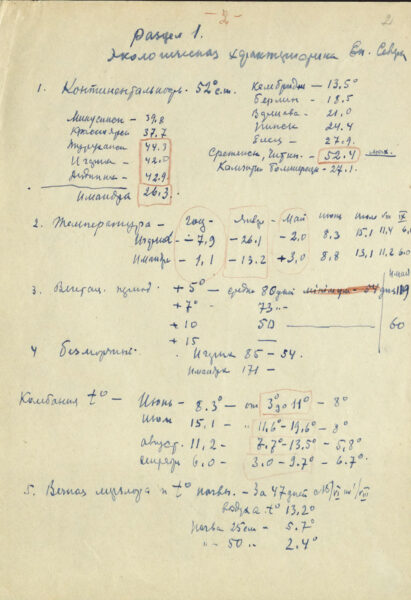 - 2 -
2
Раздел 1.
Экологическая характеристика Ен. Севера
1. Континентальность. 52° с.ш.
Кембридж - 13,5°
Берлин - 18.5
Варшава - 21.0
Минусинск - 39.8
Пинск - 24.4
Красноярск 37.7
Елец - 27.9.
Туруханск 44.3
Сретенск, Читин. - 52.4 мах.
Игарка - 42.0
27.1.
Дудинка - 42.9
Имандра 26.3
2. Температура - год - Январь - Май июнь июль VIII IX
Игарка - - 7,9 - 26.1 - 2.0 8.3 15.1 11,4 6,0
Имандра - 1,1 - 13.2 + 3,0 8,8 13,1 11,2 6.0
3. Вегетац. период + 5° - средне 80 дней
119
+ 7° 73 "
+ 10 50 60
+ 15 —
4 Безморозный. Игарка 85 - 54.
Имандра 171 -
Колебания t° - Июнь - 8.3° - от 3° 11° - 8°
Июль 15,1 - " 11,6° - 19,6° - 8°
август. 11,2 - 7.7° - 13.5° - 5,8°
сентябрь 6.0 - 3.0 - 9.7° - 6.7°.
5. Вечная мерзлота и t° почвы. - За 47 дней с 15/VI по 1/VIII
воздуха t° 13,2°
Почва 25 см - 5.7°
" - 50 " 2.4°